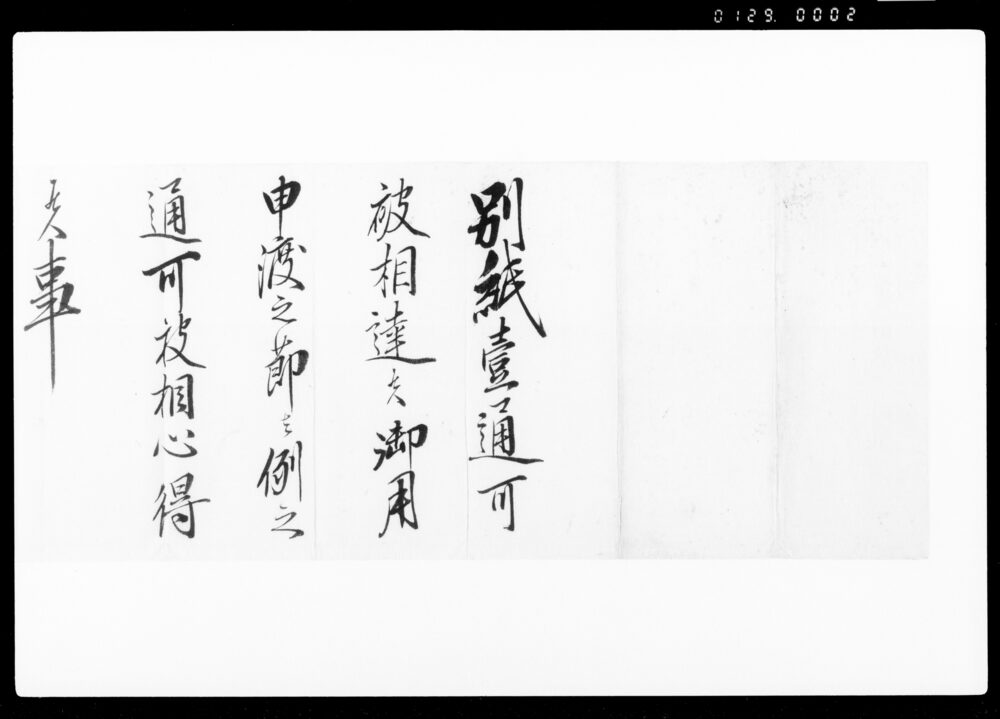 0129. 0002
別紙壹通可
被相達候御用
申渡之節者例之
通可被相心得
候事